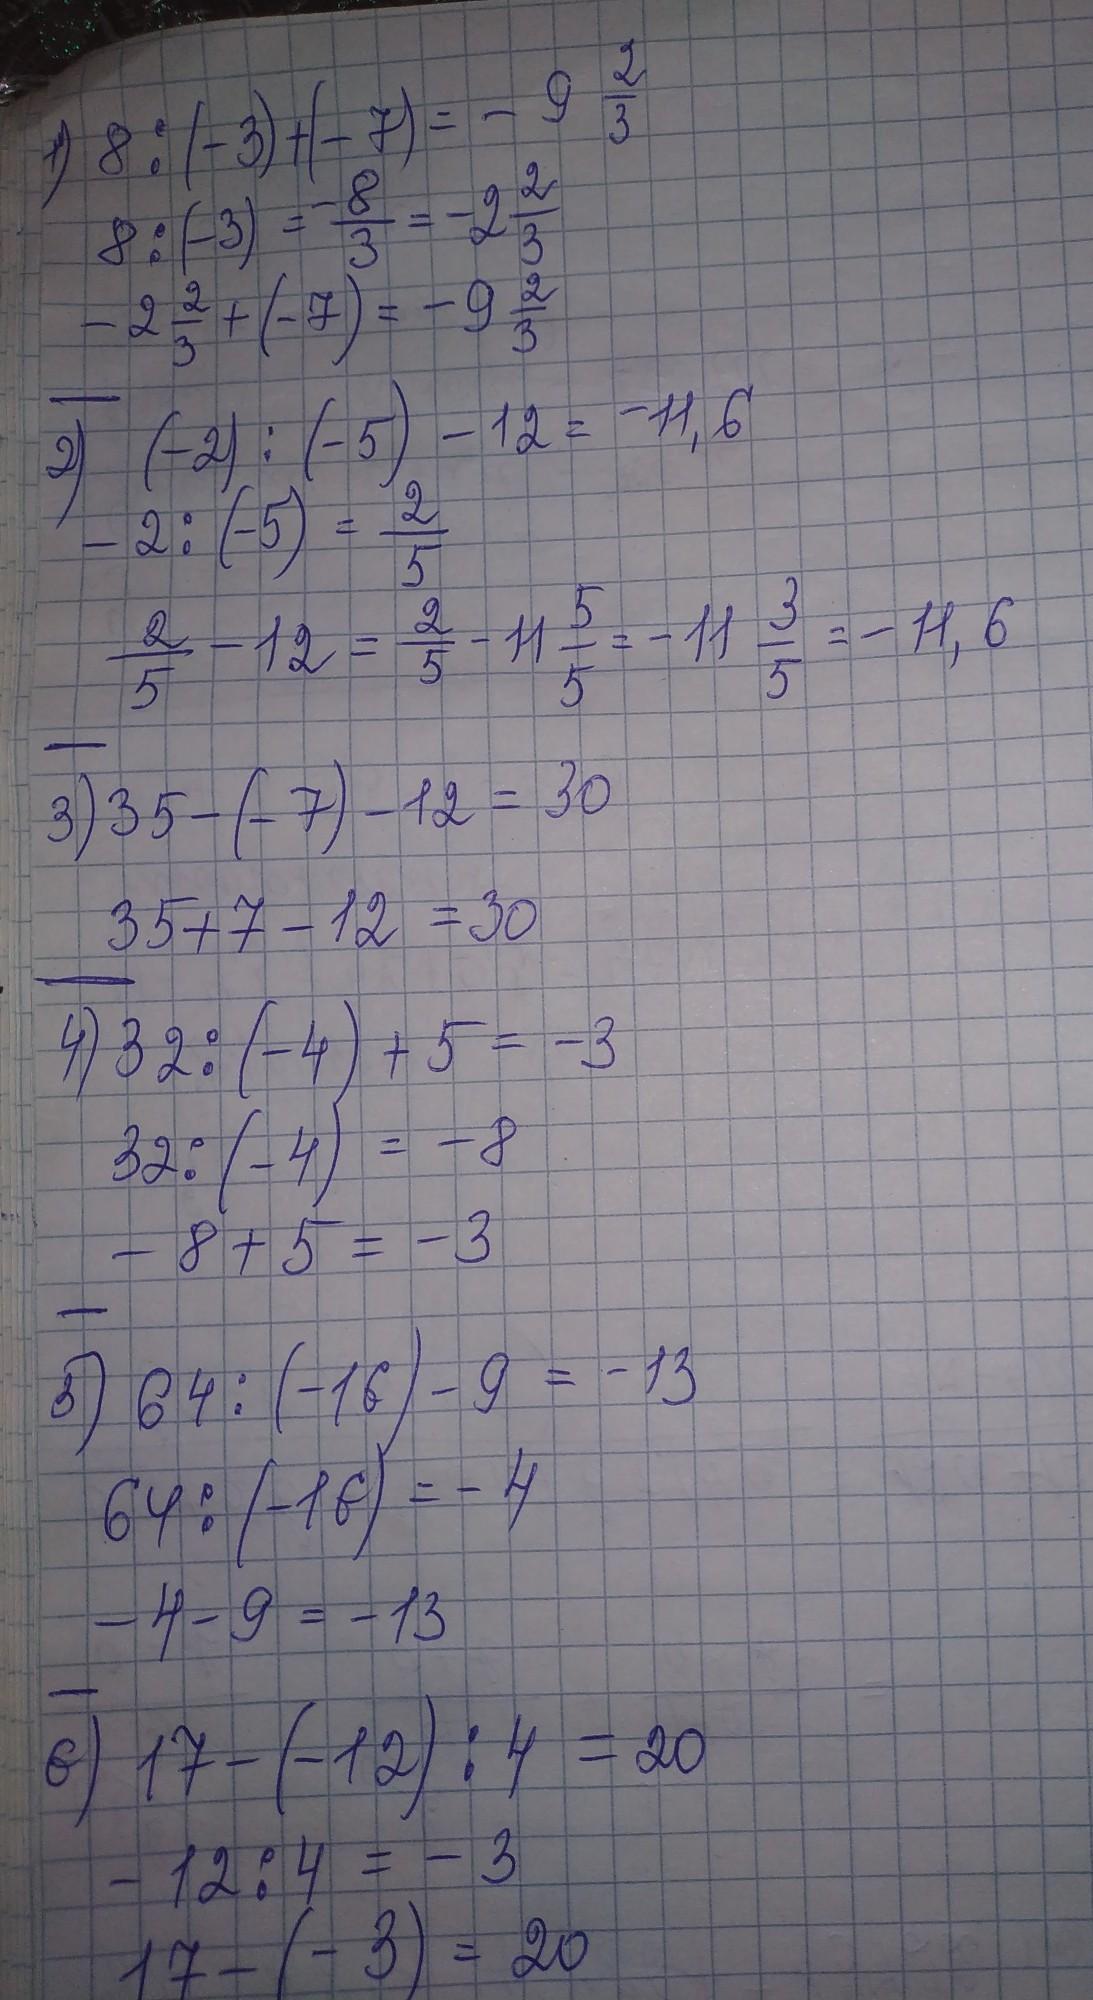 1) 8 : (-3) + (-7) = - 9 2/3
8 : (-3) = -8/3 = -2 2/3
- 2 2/3 + (-7) = - 9 2/3
2) (-2) : (-5) - 12 = -11,6
- 2 : (-5) = 2/5
2/5 - 12 = 2/5 - 11 5/5 = - 11 3/5 = - 11,6
3) 35 - (-7) - 12 = 30
35 + 7 - 12 = 30
4) 32 : (-4) + 5 = -3
32 : (-4) = - 8
- 8 + 5 = - 3
5) 64 : (-16) - 9 = -13
64 : (-16) = - 4
- 4 - 9 = - 13
6) 17 - (-12) : 4 = 20
- 12 : 4 = - 3
17 - (-3) = 20